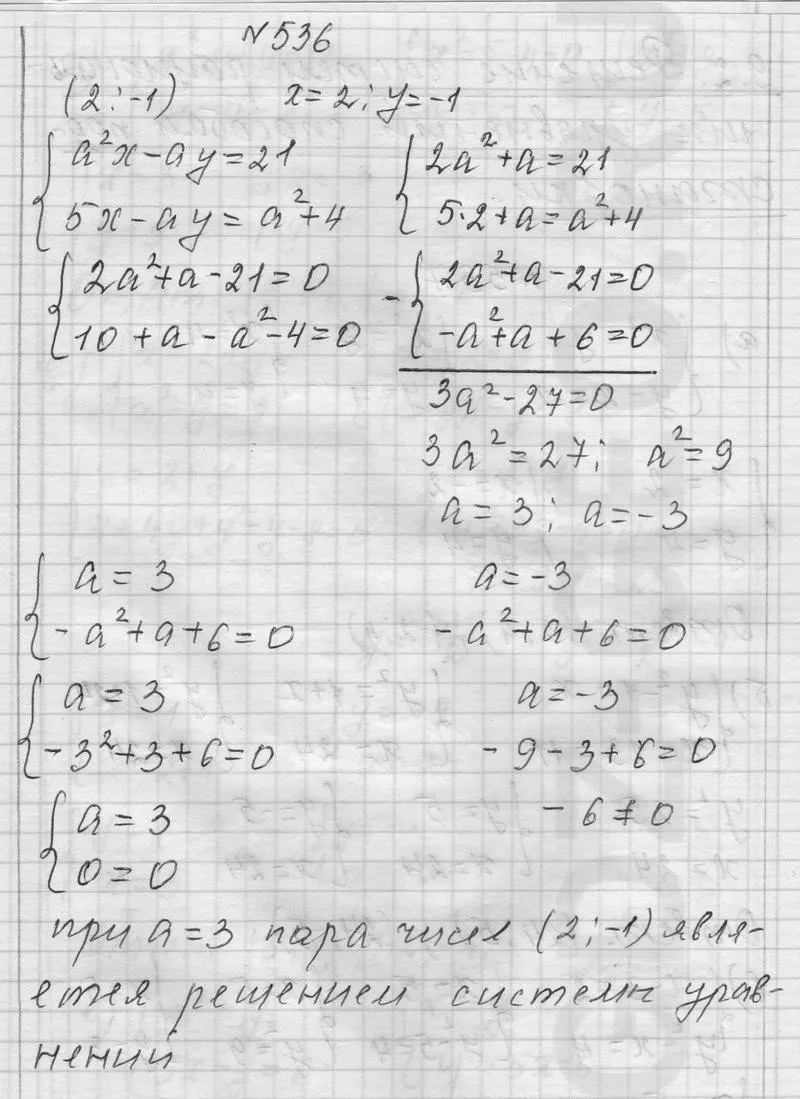 №536
(2;-1) x=2; y=-1
{a²x-ay=21 {2a²+a=21
{5x-ay=a²+4 {5·2+a=a²+4
{2a²+a-21=0 -{2a²+a-21=0
{10+a-a²-4=0 {-a²+a+6=0
3a²-27=0
3a²=27; a²=9
a=3; a=-3
{a=3 a=-3
{-a²+a+6=0 -a²+a+6=0
{a=3 a=-3
{-3²+3+6=0 -9-3+6=0
{a=3 -6≠0
{0=0
при a=3 пара чисел (2;-1) явля-
ется решением системы урав-
нений